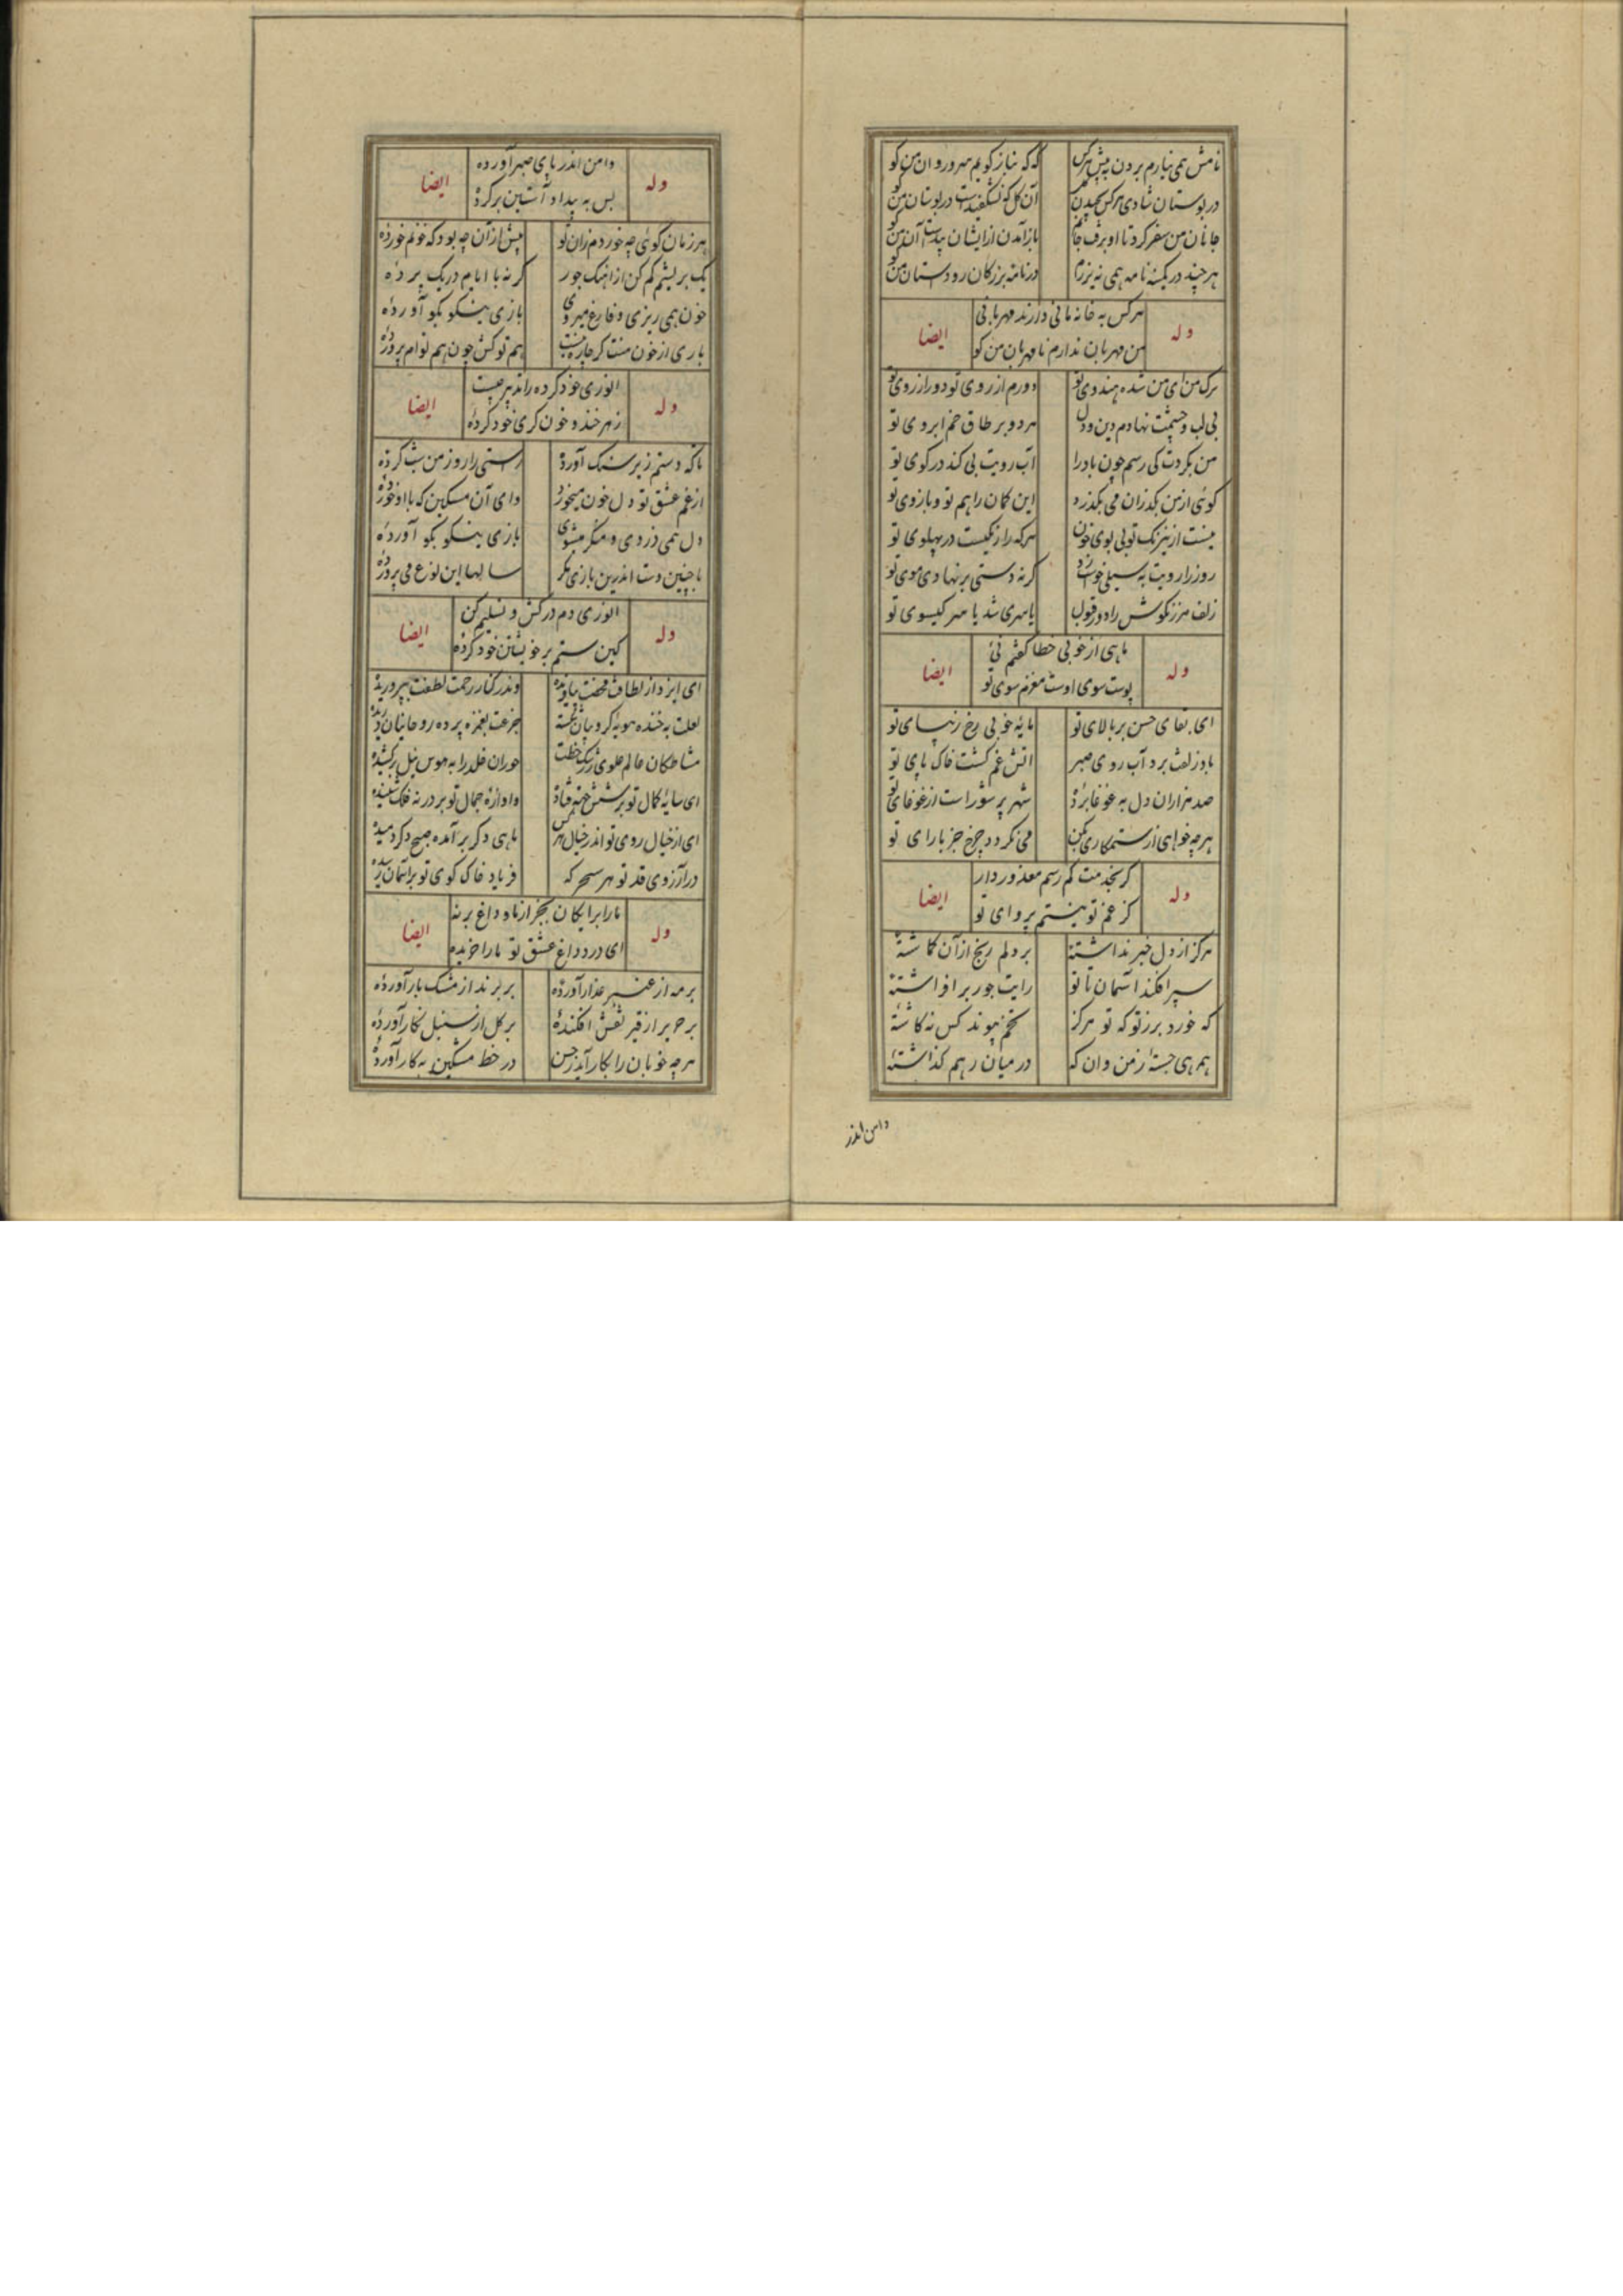 نامش همی نیارم بردن به پیش هرکس
که که بناز کویم سرو روان من کو
در بوستان شادی هرکس بچیدن
آن گل که نشکفیدست در بوستان من کو
جانان من سفر کرد تا او برفت جانم
باز آمدن از ایشان پیداست آن من کو
هرچند در کمینه نامه همی نیرزم
در نامه بزرکان رو داستان من کو
وله
هرکس به خانه مانی دارند مهربانی
من مهربان ندارم نامهربان من کو
ایضا
ترک من ای من شده هندوی تو
دورم از روی تو دور از روی تو
بی لب و چشمت نهادم دین و دل
هر دو بر طاق خم ابروی تو
من بکردت کی رسم چون باد را
آب رویت بی کند در کوی تو
کوئی از من بکذران می بکذرد
این کمان را هم تو و بازوی تو
نیست از نیرنک تو بی بوی خون
هرکه را رنکیست در پهلوی تو
روز را رویت به سیلی خواست زد
کرنه دستی برنهادی موی تو
زلف مرزنکوش را در قول
یا سری شد با سر کیسوی تو
وله
ماهی از خوبی خطا کفتم نی
پوست سوی اوست مغزم سوی تو
ایضا
ای بقای حسن بر بالای تو
مایه خوبی رخ زیبای تو
باد زلفت برد آب روی صبر
آتش غم کشت خاک پای تو
صد هزاران دل به غوغا برده
شهر پر شور است از غوغای تو
هرچه خواهی از ستمکاری بکن
می نکردد چرخ جز بارای تو
وله
کر بخدمت کم رسم معذور دار
کز غم تو نیستم پروای تو
ایضا
هرکز از دل خبر نداشتهٔ
بر دلم رنج از آن کاشتهٔ
سپر افکند آسمان تا تو
رایت جور برافراشتهٔ
که خورد بر ز تو که تو هرکز
تخم پیوند کس نه کاشتهٔ
همرهی جستهٔ ز من وان که
در میان رهم کذاشتهٔ
دامن اندر
وله
دامن اندر پای صبر آورده
پس به بیداد آستین برکردهٔ
ایضا
هر زمان کوئی چه خوردم زان تو
بیش از آن چه بود که خونم خوردهٔ
یک بریشم کم کن از آهنک جور
کر نه با ایام در یک پردهٔ
خون همی ریزی و فارغ میروی
بازی نیکو بکو آوردهٔ
باری از خون منت کر چاره نیست
هم تو کش چون هم توام پروردهٔ
وله
انوری خود کرده را تدبیر چیست
زهر خند و خون کری خود کردهٔ
ایضا
تا که دستم زیر سنک آوردهٔ
راستی را روز من شب کردهٔ
از غم عشق تو دل خون میخورد
وای آن مسکین که با او خوردهٔ
دل همی دزدی و منکر میشوی
بازی نیکو بکو آوردهٔ
با چنین دست اندرین بازی مکر
سالها این لوع می پروردهٔ
وله
انوری دم درکش و تسلیم کن
کین ستم بر خویشتن خود کردهٔ
ایضا
ای ایزد از لطافت محضت بیافریده
وندر کنار رحمت لطفت بپروریده
لعلت به خنده توبه کروبیان شکسته
جزعت بغمزه پرده روحانیان دریده
مشاطکان عالم علوی ز رشک خطت
حوران خلد را به هوس نیل برکشیده
ای سایه کمال تو بر شش جهت فتاده
واوازه جمال تو بر در نه فلک شنیده
ای از خیال روی تو اندر خیال هرکس
ماهی دکر برآمده صبح دکر دمیده
در آرزوی قد تو هر سحر که
فریاد خاک کوی تو بر آسمان رسیده
وله
ما را برایکان بخر از ما و داغ برنه
ای درد و داغ عشق تو ما را خریده
ایضا
بر مه از عنبر عذار آوردهٔ
بر پرند از مشک بار آوردهٔ
بر حریر از قیر نقش افکندهٔ
بر کل از سنبل نکار آوردهٔ
هرچه خوبان را بکار آید ز حسن
در خط مشکین به کار آوردهٔ